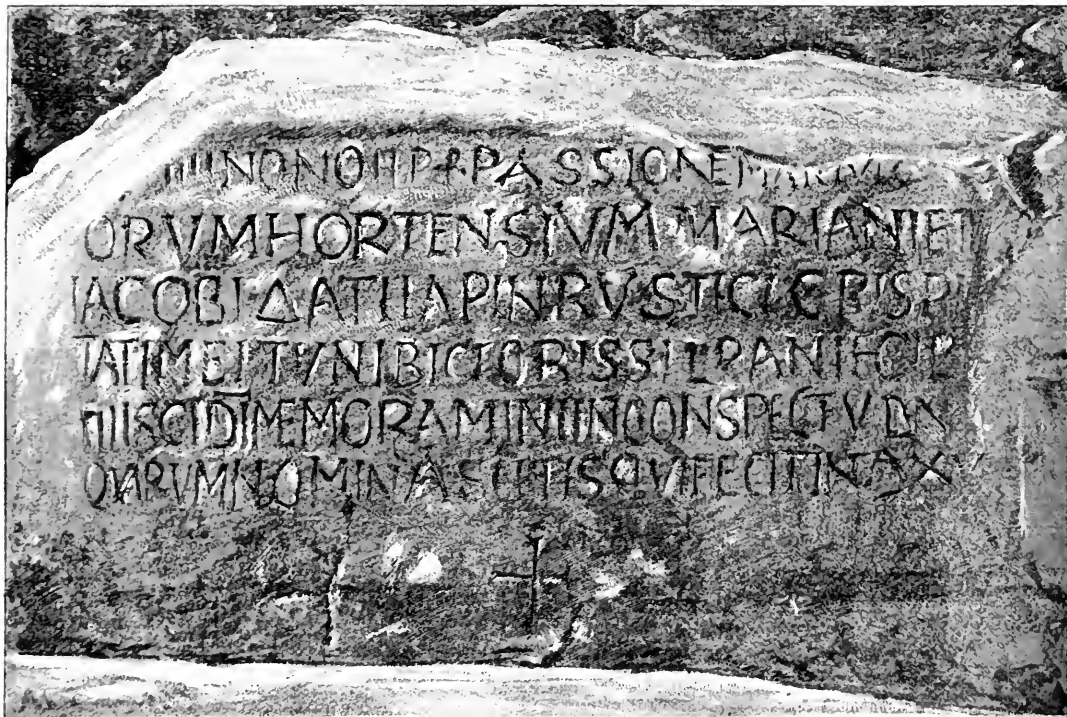 IIII NON OIIP & PASSIONE MARTVR
ORVM HORTENSIVM MARIANI ET
IACOBI ΔATI IAPIN RVSTICI CRISPI
TATI METTVNI BICTORIS SILBANI EGIP
TII SCI DI MEMORAMINI IN CONSPECTV DN
QVARVM NOMINA SCITIS QVI FECIT IN DXV